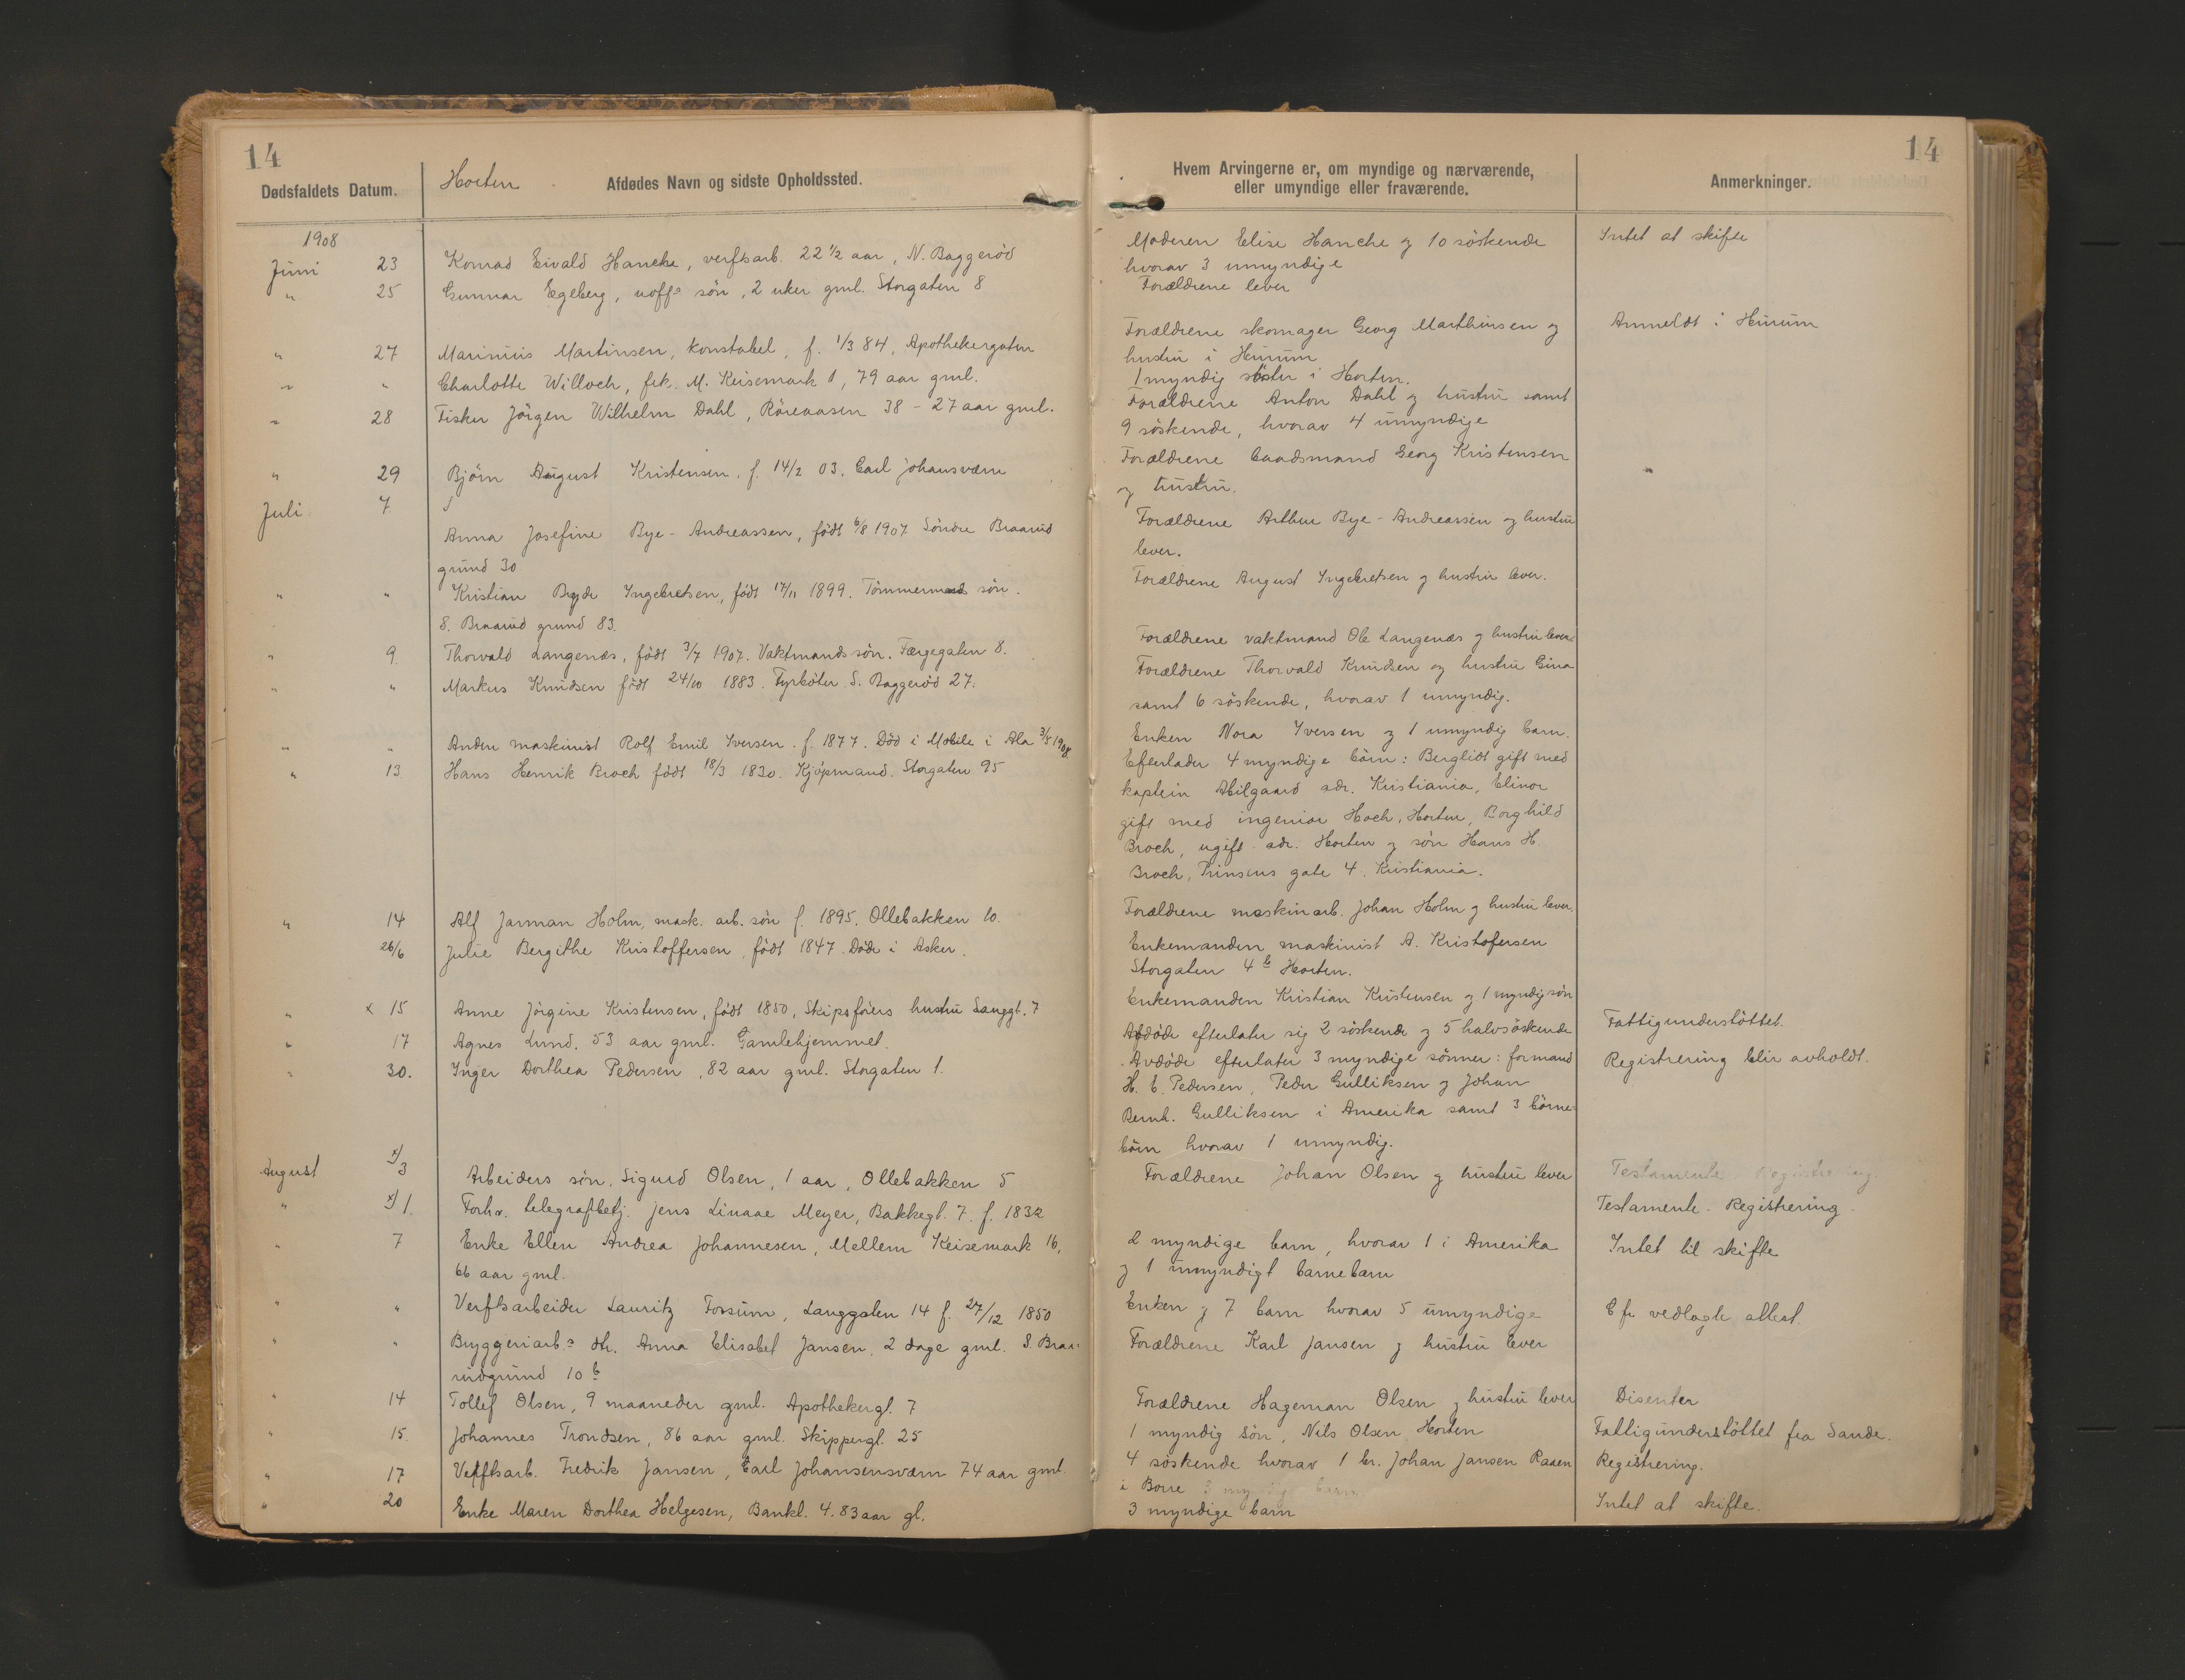 14
Dødsfaldets Datum.
Horten
Afdødes Navn og sidste Opholdssted.
1908
Juni 23 Konrad Eivald Hancke, verftsarb. 22 ½ aar, N. Baggerød
" 25 Gunnar Egeberg, uoff.s søn, 2 uker gml. Storgaten 8
" 27 Marinius Martinsen, konstabel, f. 1/3 84, Apothekergaten
" " Charlotte Willoch, frk. M. Keisemark 1, 79 aar gml.
" 28 Fisker Jörgen Wilhelm Dahl, Röreaasen 38 - 27 aar gml.
" 29 Björn August Kristensen, f. 14/2 03. Carl Johansværn
Juli 7
Anna Josefine Bye - Andreassen, födt 6/8 1907 Söndre Braarud
grund 30
" " Kristian Bryde Ingebretsen, födt 17/11 1899. Tömmermands sön.
S. Braarud grund 83.
" 9. Thorvald Langenæs, födt 3/7 1907. Vaktmands sön. Færgegaten 8.
" " Markus Knudsen födt 24/10 1883. Fyrböter S. Baggeröd 27.
" " Anden maskinist Rolf Emil Iversen. f. 1877. Död i Mobile i Ala 3/5 1908.
" 13 Hans Henrik Broch födt 18/3 1830. Kjöpmand. Storgaten 95
" 14 Alf Jarman Holm, mask. arb. sön f. 1895. Ollebakken 10.
26/6 Julie Bergithe Kristoffersen, födt 1847. Döde i Asker.
" x 15 Anne Jörgine Kristensen, födt 1850, Skipsförers hustru Langgt. 7
" 17 Agnes Lund, 53 aar gml. Gamlehjemmet.
" 30. Inger Dorthea Pedersen, 82 aar gml. Storgaten 1.
August x/3 Arbeiders sön, Sigurd Olsen, 1 aar, Ollebakken 5
" x/1. Forhv. telegrafbetj. Jens Linaae Meyer, Bakkegt. 7. f. 1832
" 7 Enke Ellen Andrea Johannesen, Mellem Keisemark 16,
66 aar gml.
" " Verftsarbeider Lauritz Forsum, Langgaten 14 f. 27/12 1850
" " Bryggeriarb.s dt. Anna Elisabet Jansen, 2 dage gml. S. Braa-
rudgrund 10 b
" 14 Tollef Olsen, 9 maaneder gml. Apothekergt. 7
" 15. Johannes Trondsen, 86 aar gml. Skippergt. 25
" 17 Verftsarb. Fredrik Jansen, Carl Johansensværn 74 aar gml.
" 20 Enke Maren Dorthea Helgesen, Bankl. 4. 83 aar gl.
14
Hvem Arvingerne er, om myndige og nærværende,
eller umyndige eller fraværende.
Anmerkninger.
Moderen Elise Hanche og 10 söskende Intet at skifte
hvorav 3 umyndige
Forældrene lever
Forældrene skomager Georg Marthinsen og Anmeldt i Hurum
hustru i Hurum
1 myndig söster i Horten.
Forældrene Anton Dahl og hustru samt
9 söskende, hvorav 4 umyndige
Forældrene baadsmand Georg Kristensen
og hustru.
Forældrene Arthur Bye - Andreassen og hustru
lever.
Forældrene August Ingebretsen og hustru lever.
Forældrene vaktmand Ole Langenæs og hustru lever
Forældrene Thorvald Knudsen og hustru Gina
samt 6 söskende, hvorav 1 umyndig.
Enken Nora Iversen og 1 umyndig barn.
Efterlader 4 myndige börn: Berglidt gift med
kaptein Abilgaard adr. Kristiania, Elinor
gift med ingeniör Hoch, Horten, Borghild
Broch, ugift adr. Horten og sön Hans H.
Broch, Prinsens gate 4, Kristiania.
Forældrene maskinarb. Johan Holm og hustru lever.
Enkemanden maskinist A. Kristofersen
Storgaten 4 b Horten.
Enkemanden Kristian Kristensen og 1 myndig sön
Avdöde efterlater sig 2 söskende og 5 halvsöskende Fattigunderstöttet.
Avdöde efterlater 3 myndige sönner: formand Registrering blir avholdt.
H. E. Pedersen, Peder Gulliksen og Johan
Bernh. Gulliksen i Amerika samt 3 börne-
börn hvorav 1 umyndig.
Forældrene Johan Olsen og hustru lever Testamente. Registrering.
Testamente - Registrering.
2 myndige barn, hvorav 1 i Amerika Intet til skifte
og 1 umyndigt barnebarn
Enken og 7 barn hvorav 5 umyndige Cfr vedlagte attest.
Forældrene Karl Jansen og hustru lever
Forældrene Hageman Olsen og hustru lever Disenter
1 myndig sön, Nils Olsen, Horten Fattigunderstöttet fra Sande.
4 söskende hvorav 1 br. Johan Jansen Raaen Registrering.
i Borre 3 myndige barn
3 myndige barn Intet at skifte.